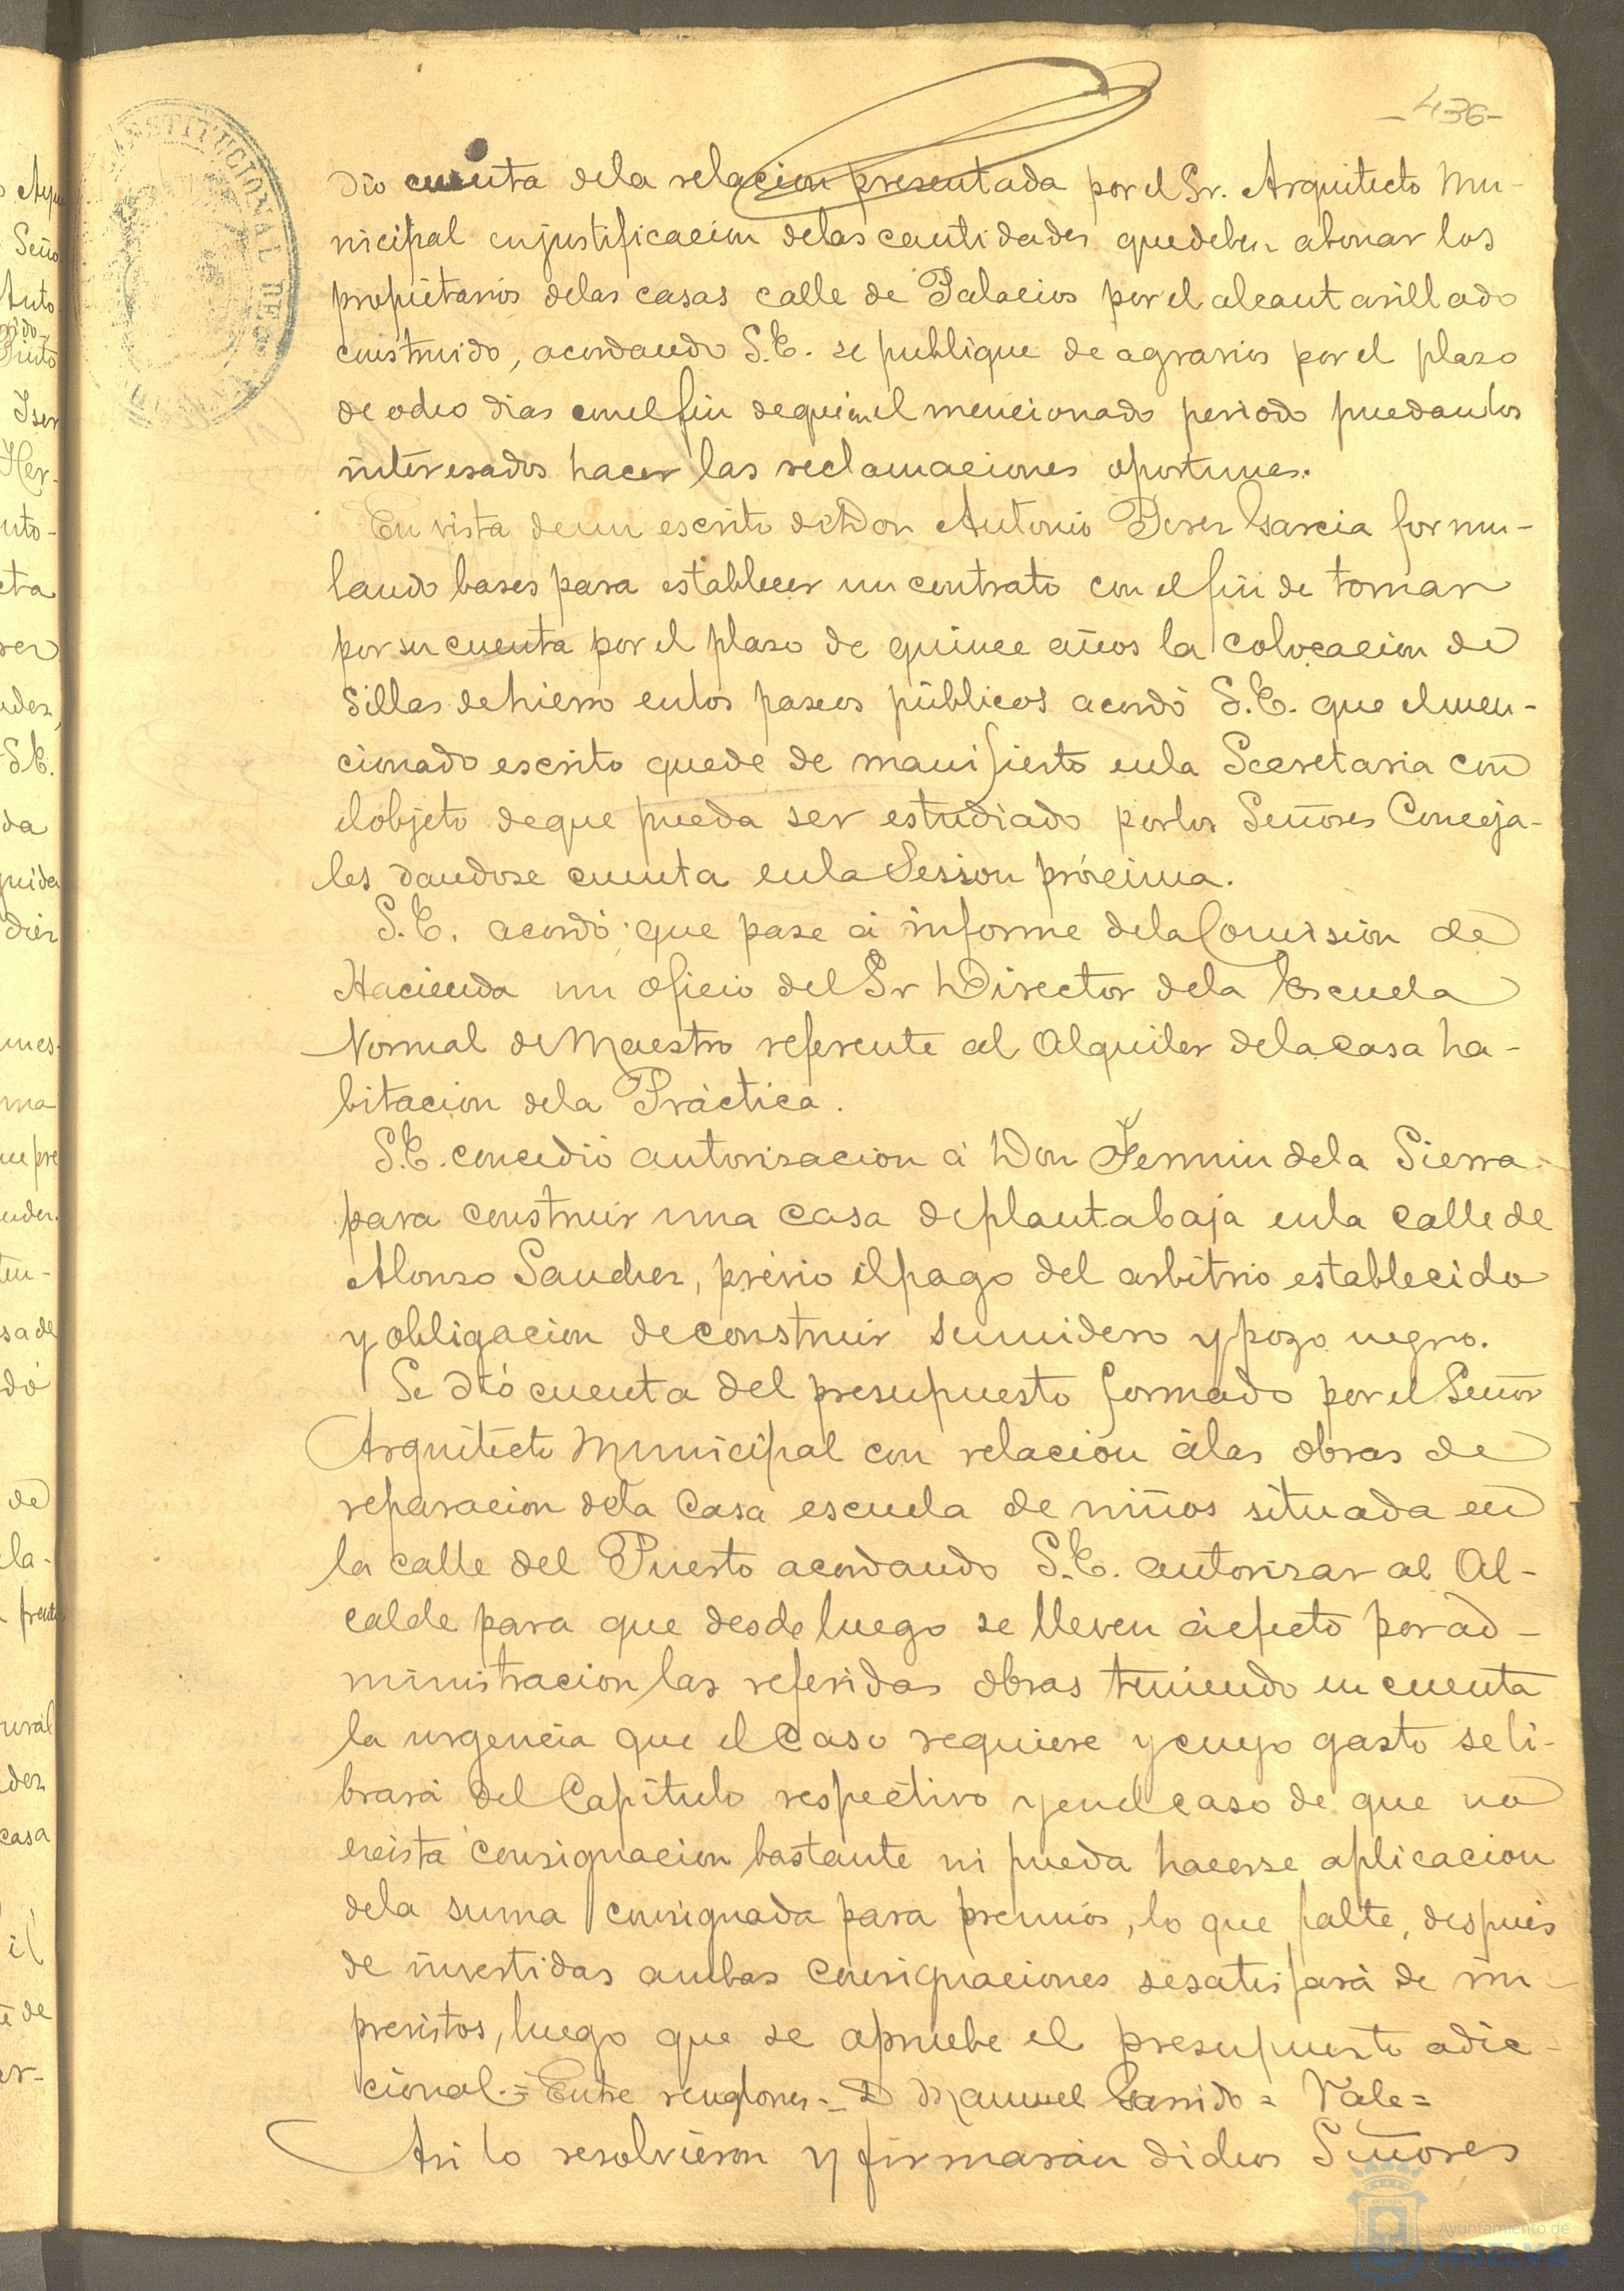 -436-
dio cuenta dela relacion presentada por el Sr. Arquitecto Mu-
nicipal en justificacion delas cantidades que deben abonar los
propietarios delas casas calle de Palacios por el alcantarillado
construido, acordando S.E. se publique de agravios por el plazo
de ocho dias con el fin de que en el mencionado periodo puedan los
interesados hacer las reclamaciones oportunas.
En vista de un escrito de Don Antonio Garcia formu-
lando bases para establecer un contrato con el fin de tomar
por su cuenta por el plazo de quince años la colocacion de
sillas de hierro en los paseos públicos acordó S.E. que el men-
cionado escrito quede de manifiesto en la Secretaria con
el objeto de que pueda ser estudiado por los Señores Conceja-
les dandose cuenta en la Sesion próxima.
S.E. acordó que pase á informe dela Comision de
Hacienda un oficio del Sr Director dela Escuela
Normal de Maestro referente al Alquiler dela casa ha-
bitacion dela Práctica.
S.E. concedió autorizacion á Don Fermin dela Sierra
para construir una casa de planta baja en la calle de
Alonso Sanchez, prévio el pago del arbitrio establecido
y obligacion de construir sumidero y pozo negro.
Se dió cuenta del presupuesto formado por el Señor
Arquitecto Municipal con relacion á las obras de
reparacion dela Casa escuela de niños situada en
la calle del Puerto acordando S.E. autorizar al Al-
calde para que desde luego se lleven á efecto por ad-
ministracion las referidas obras teniendo en cuenta
la urgencia que el Caso requiere y cuyo gasto se li-
brará del Capitulo respectivo y en el caso de que no
exista consignacion bastante ni pueda hacerse aplicacion
dela suma consignada para premios, lo que falte, despues
de invertidas ambas consignaciones se satisfará de im-
previstos, luego que se apruebe el presupuesto adic-
cional.=Entre renglones=D Manuel Garrido=Vale=
Asi lo resolvieron y firmarán dichos Señores
Ayuntamiento de
HUELVA